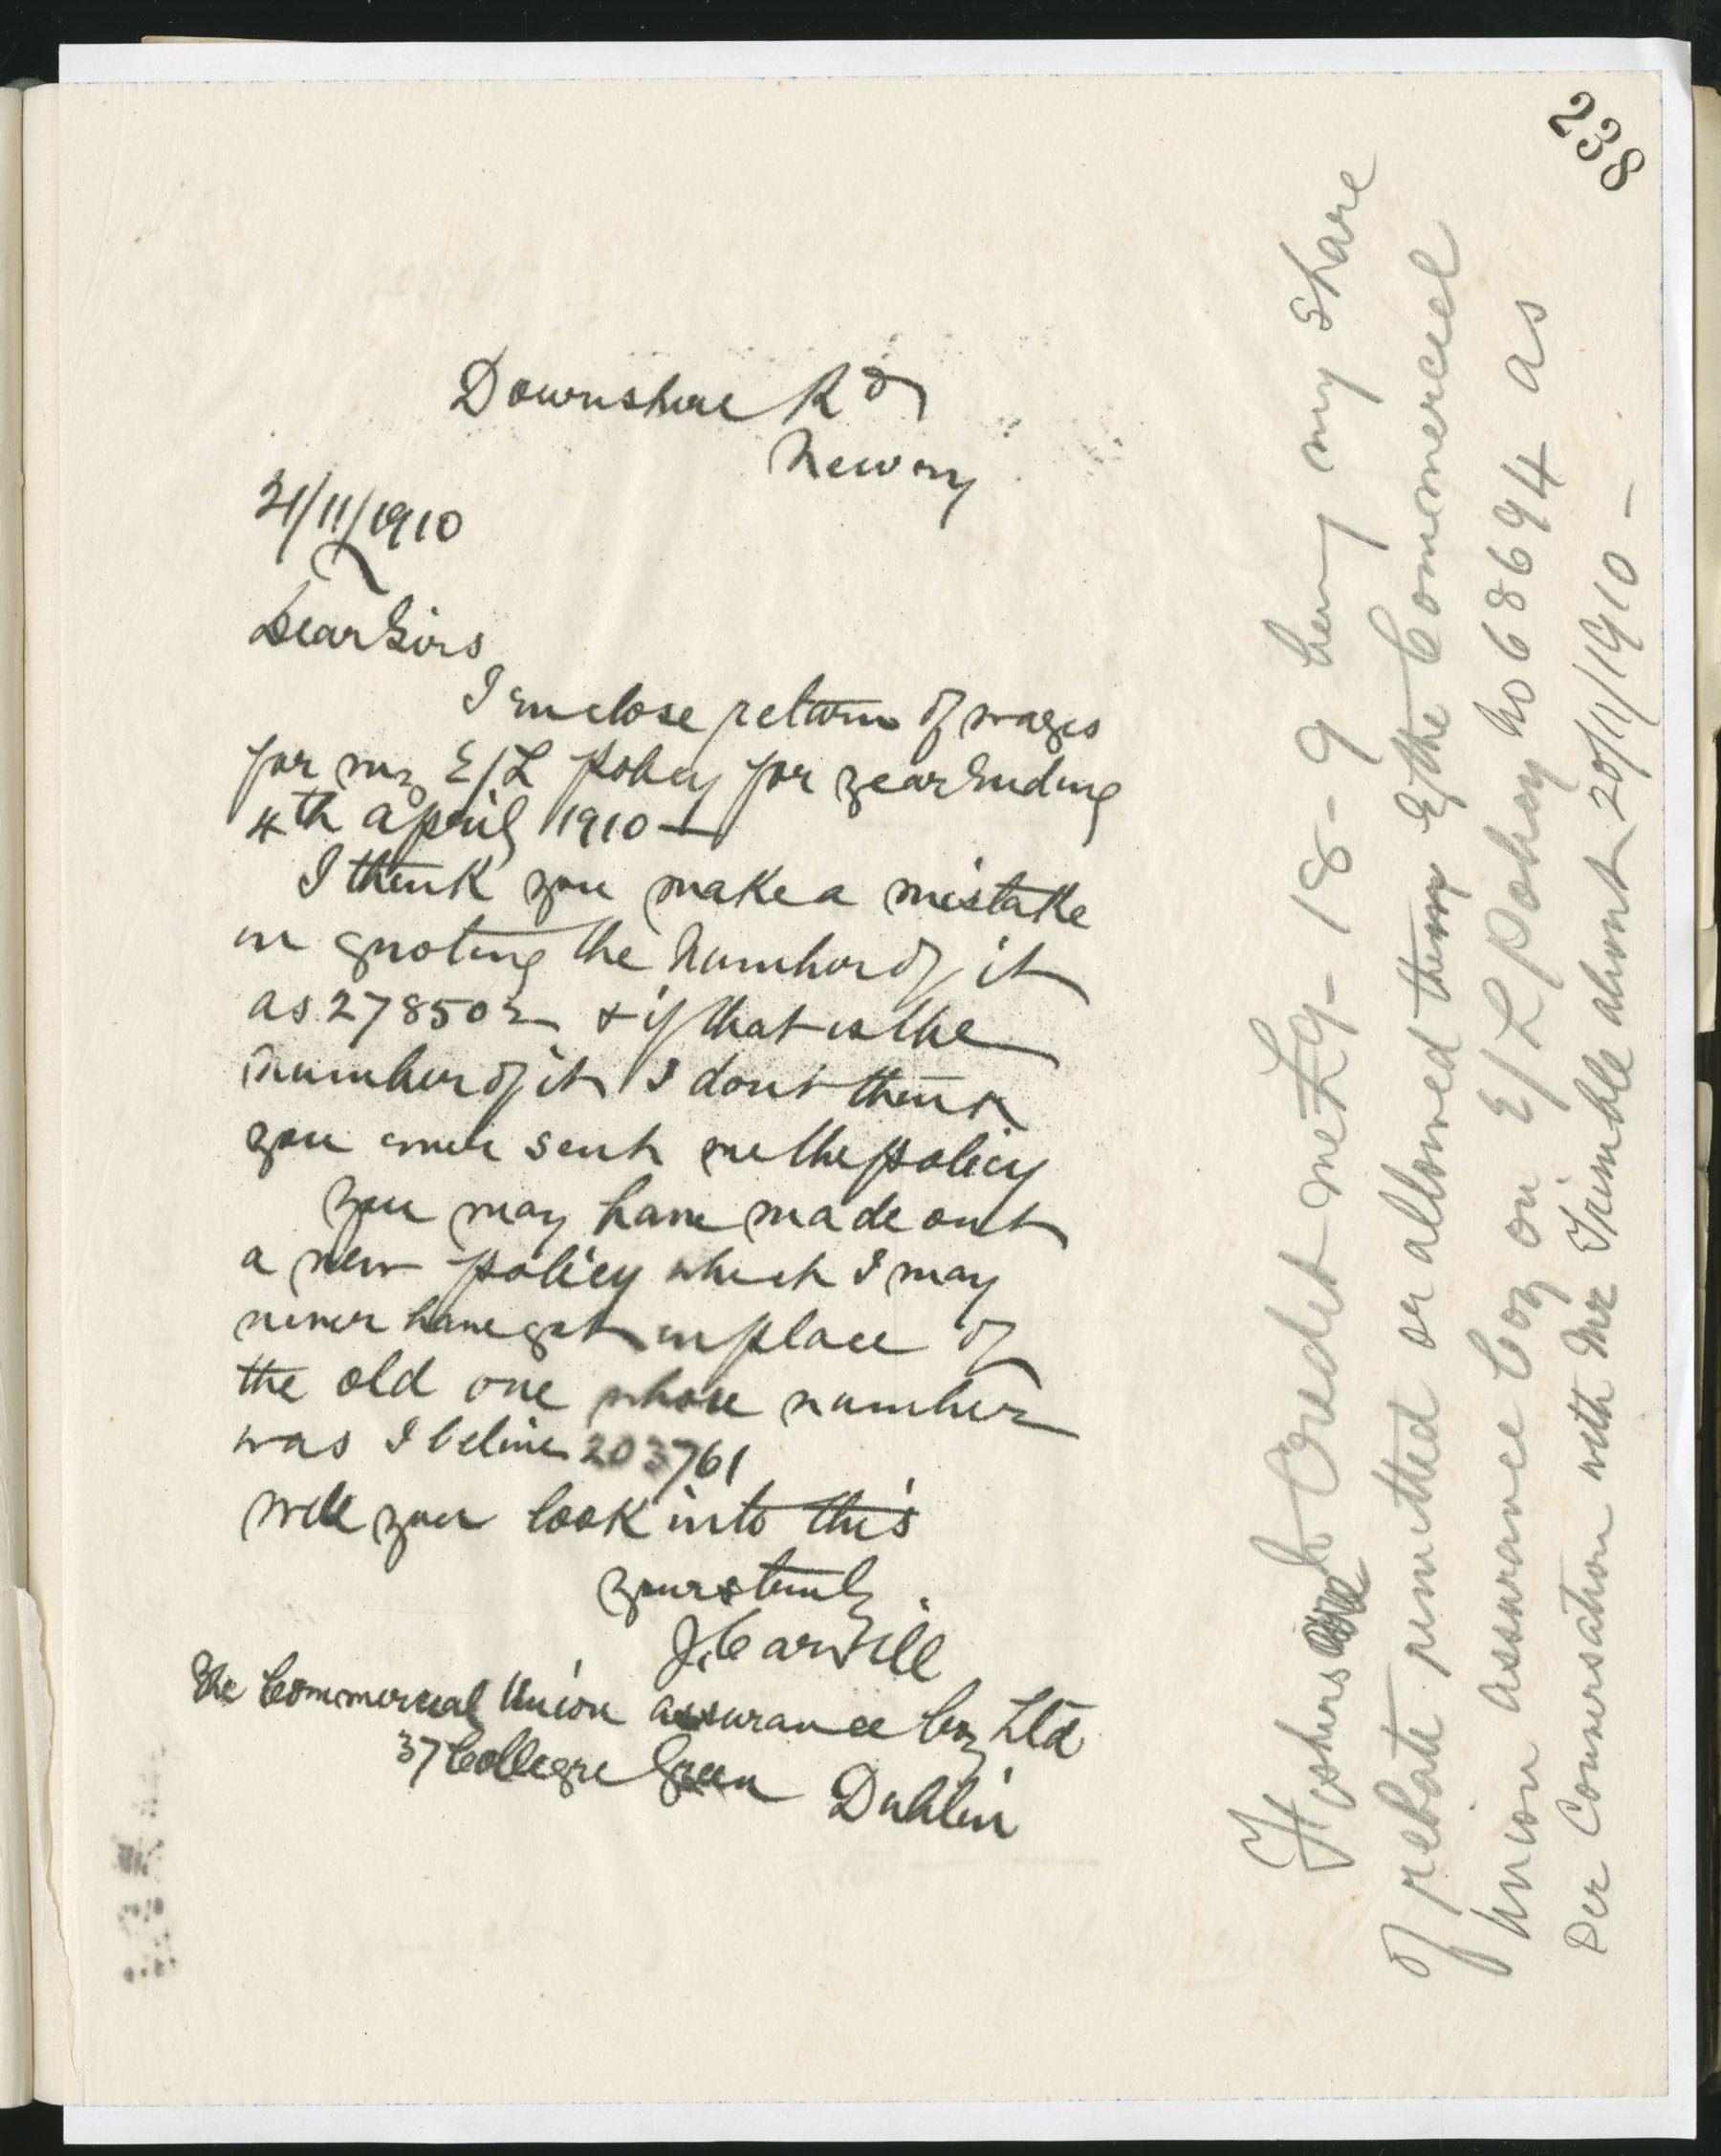 238
Downshire Rd
Newry
21/11/1910
Dear Sirs
I enclose return of wages
for my E/L policy for year Ending
4th april 1910 —
I think you make a mistake
in quoting the Number of it
as 278502 & if that is the
number of it I dont think
you ever sent me the policy
you may have made out
a new policy which I may
never have got in place of
the old one whose number
was I believe 203761
will you look into this
yours truly
J. Carvill
The Commercial Union assurance Coy Ltd
37 College Green Dublin
Fishers Credit me £9-18-9 being my share
of rebate remitted or allowed them by the Commercial
Union Assurance Coy on E/L Policy No 68694 as
per Conversation with Mr Trimble about 20/11/1910 —